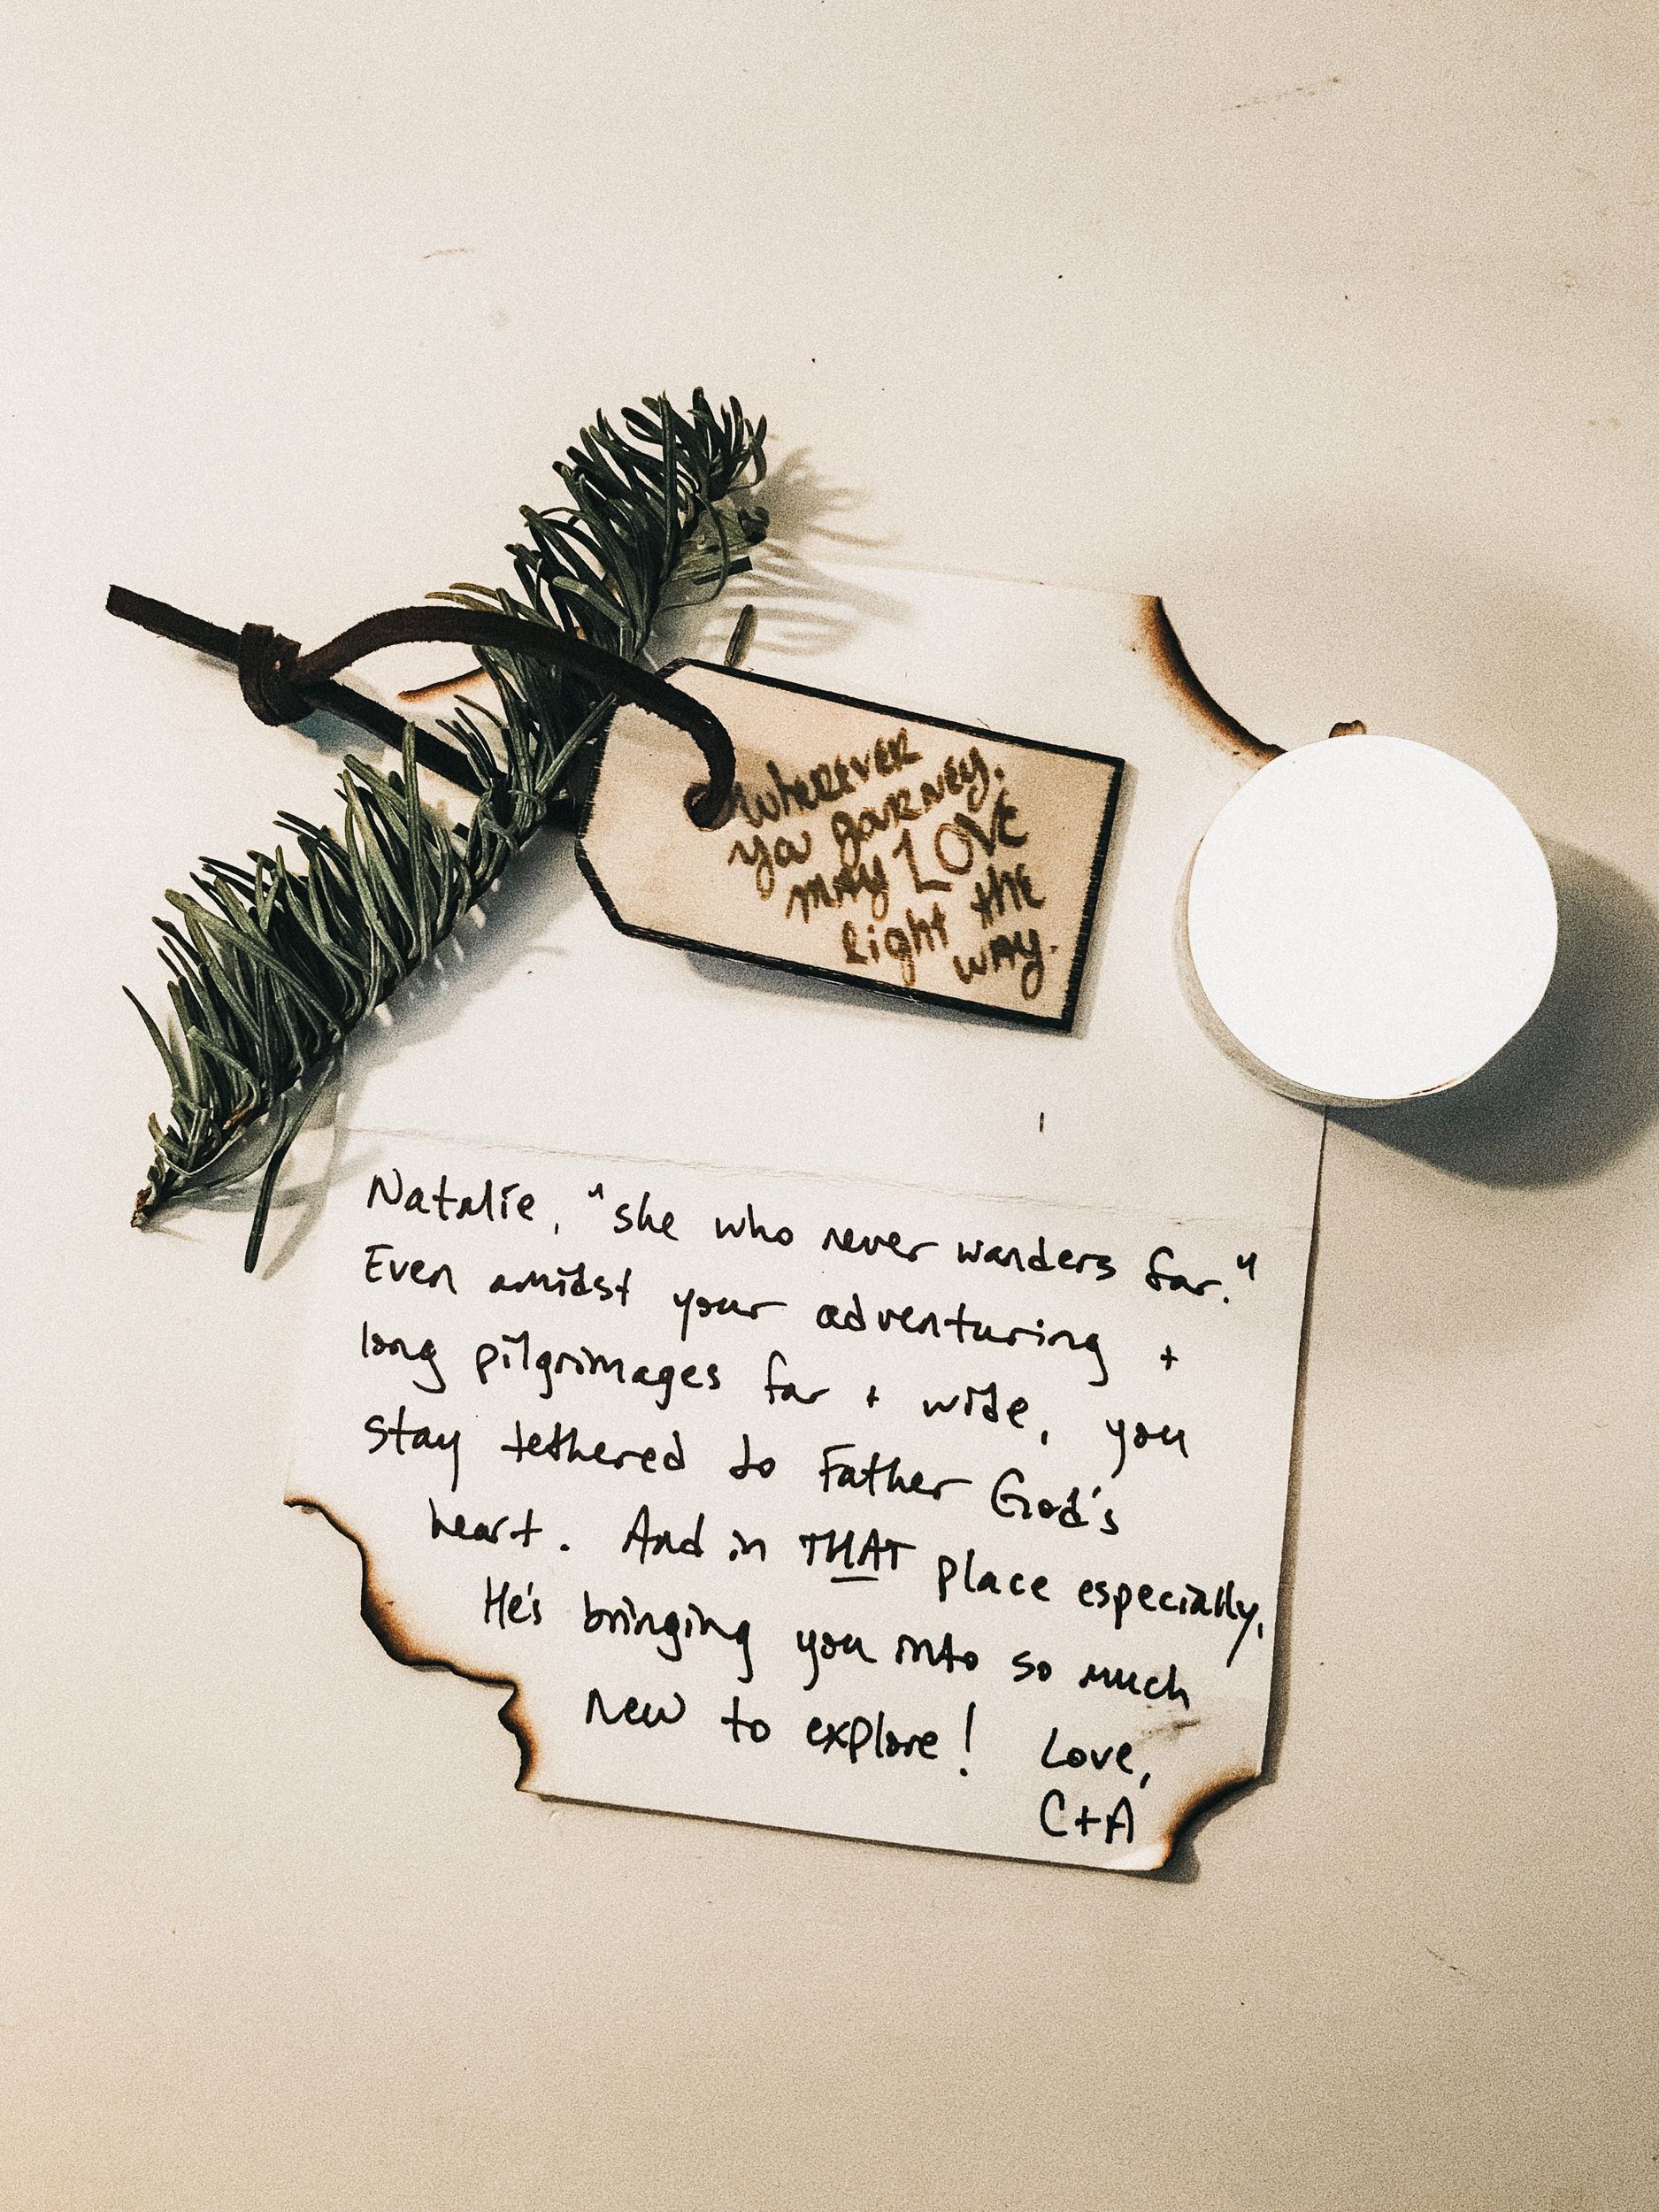 WHEREVER
you JOURNEY.
MAY LOVE
light the
WAY.
Natalie, "she who never wanders far."
Even amidst your adventuring +
long pilgrimages far + wide, you
stay tethered to Father God's
heart. And in THAT place especially,
He's bringing you into so much
new to explore! Love,
C+A